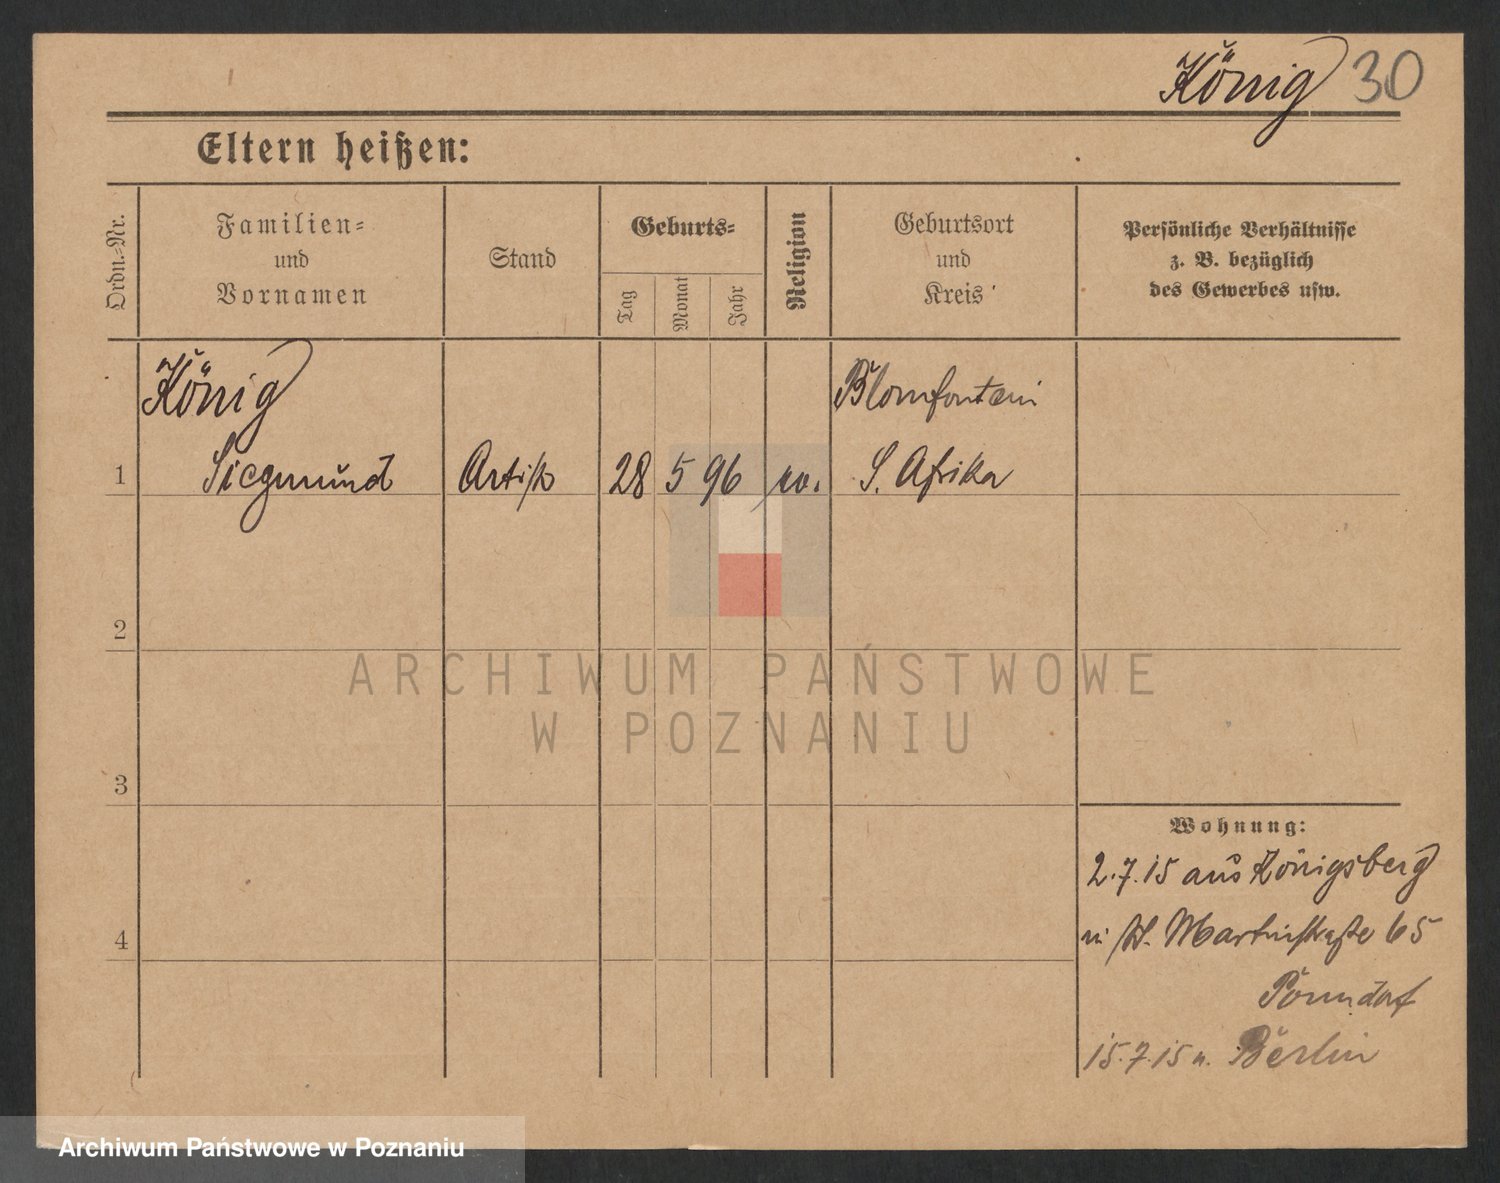 König 30
Eltern heißen:
Ordn.=Nr.
Familien=
und
Vornamen
Stand
Geburts=
Tag
Monat
Jahr
Religion
Geburtsort
und
Kreis
Persönliche Verhältnisse
z. B. bezüglich
des Gewerbes usw.
König
Blomfontein
1 Siegmund Artist 28 5 96 S. Afrika
2
ARCHIWUM PAŃSTWOWE
W POZNANIU
3
Wohnung:
2.7.15 aus Königsberg
4
St. Martinstraße 65
15.7.15 n. Berlin
Archiwum Państwowe w Poznaniu